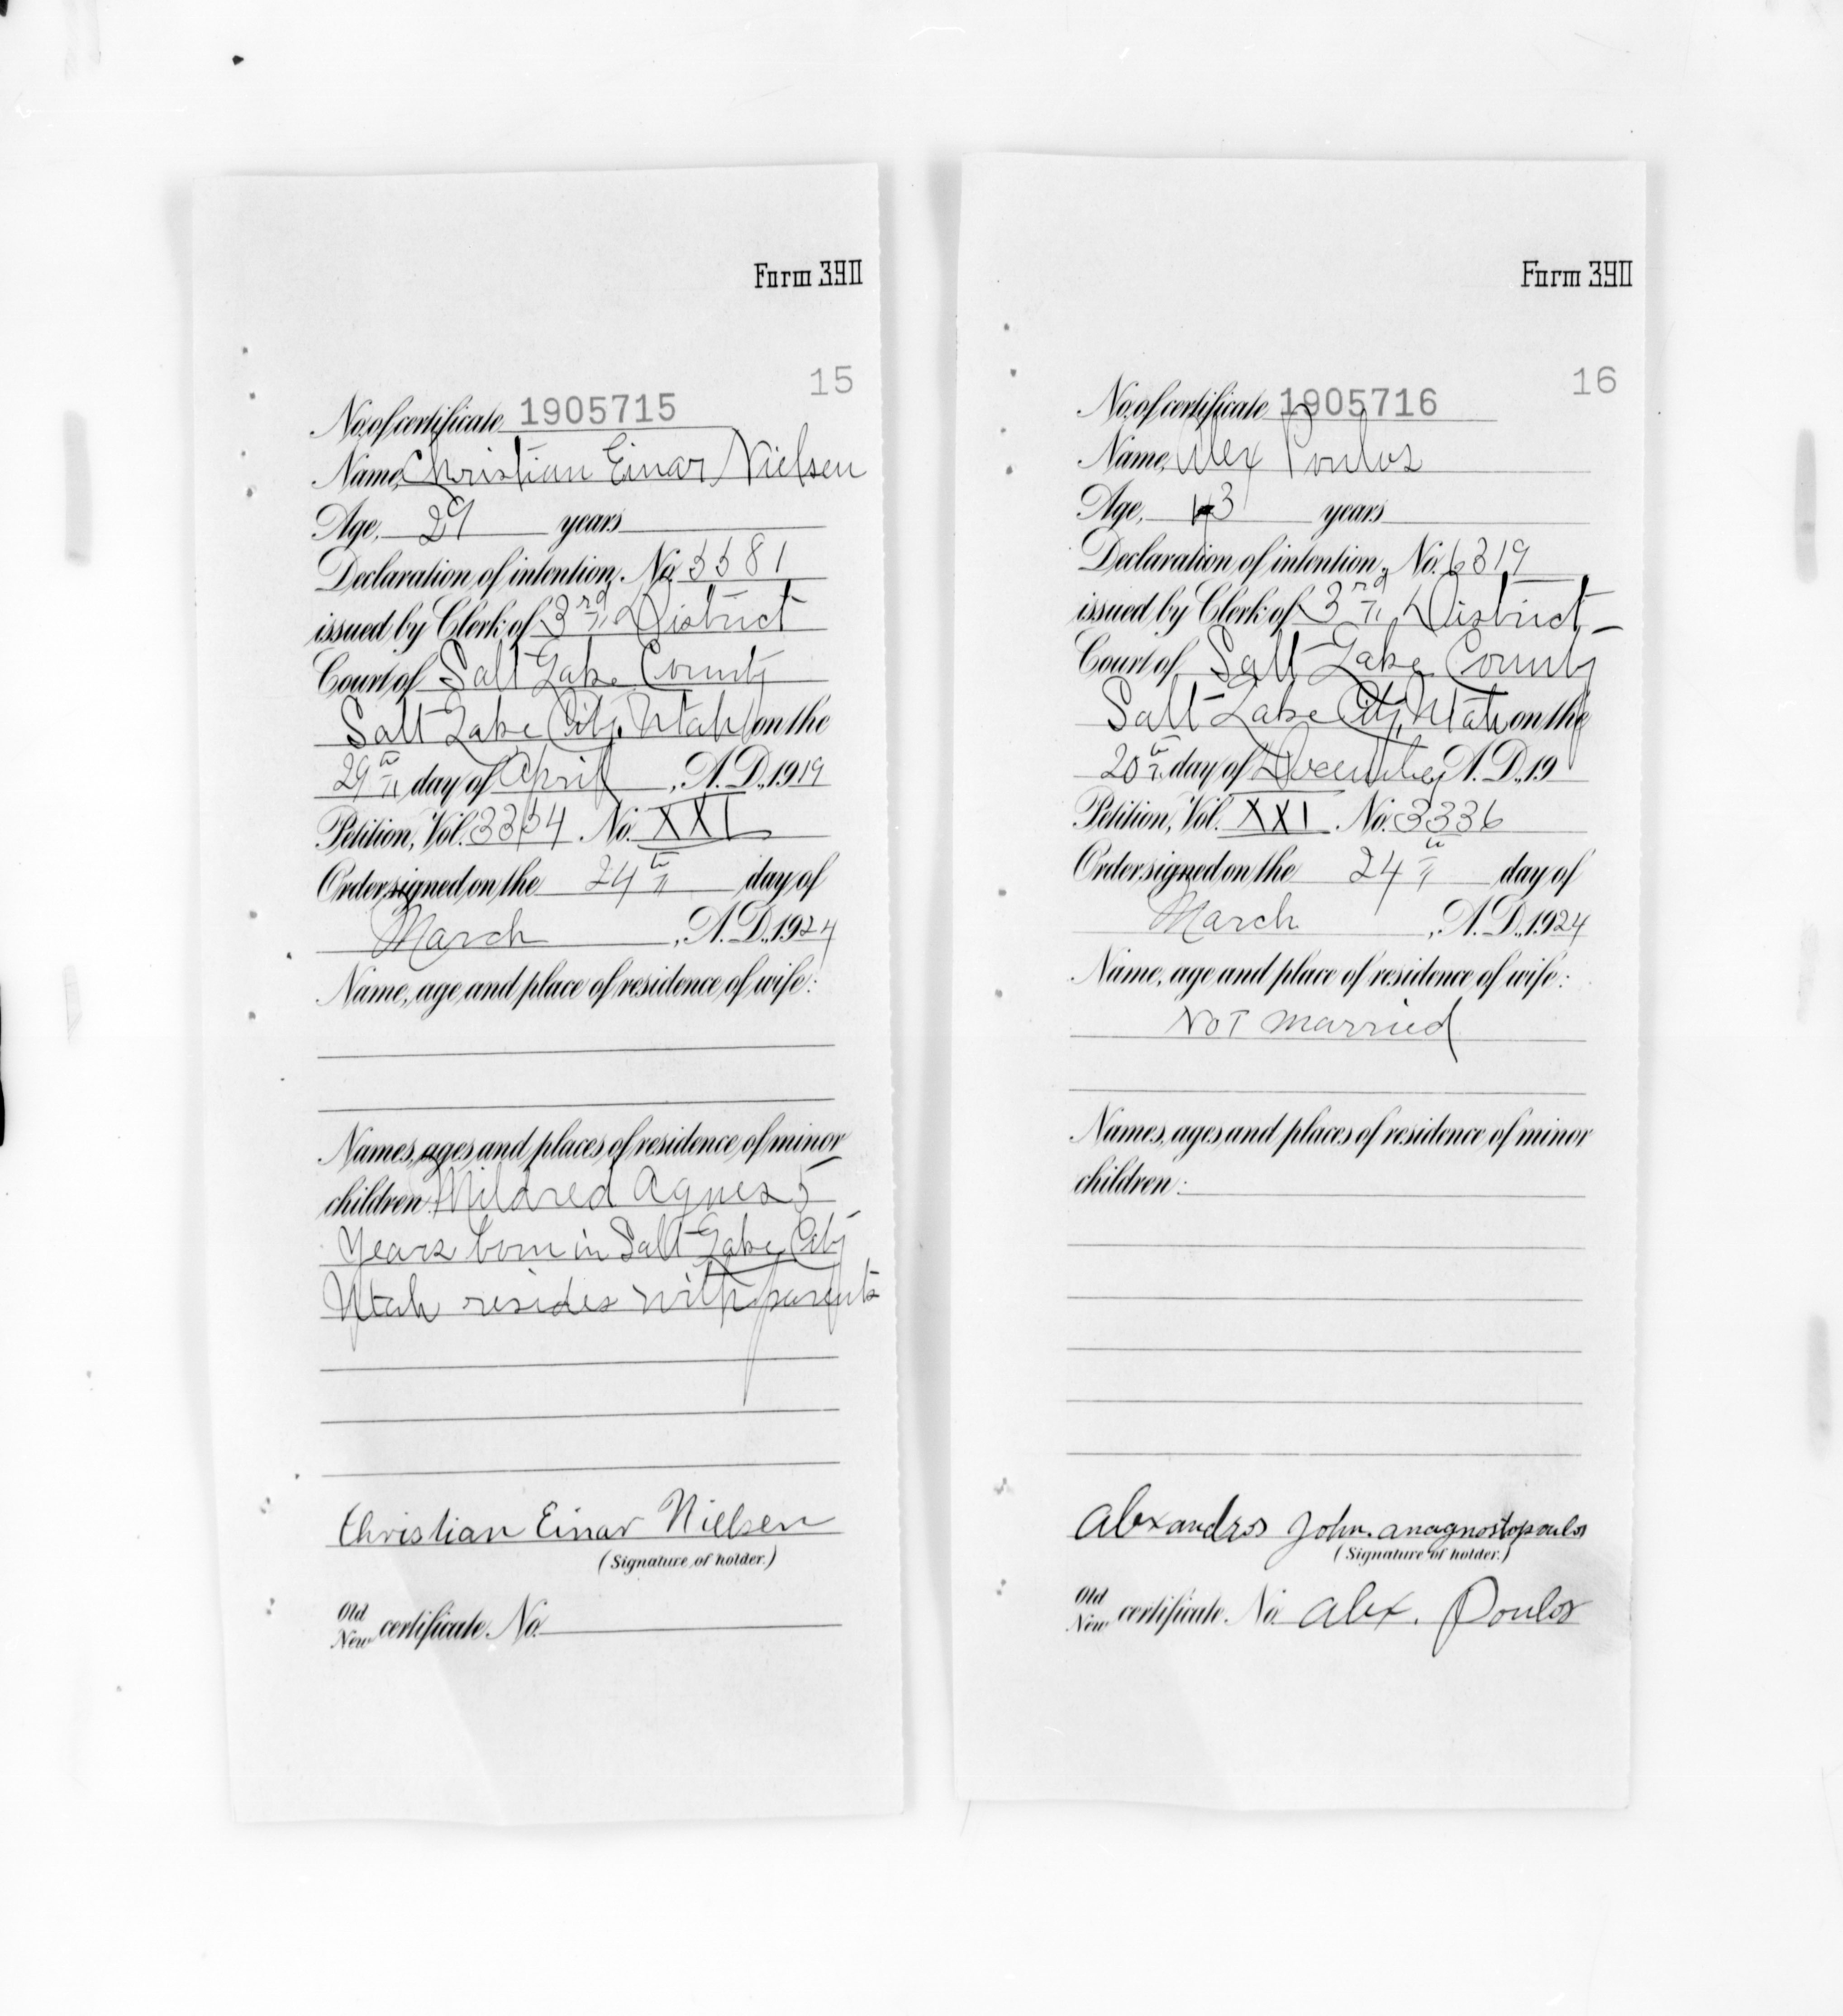 Form 390
15
No. of certificate 1905715
Name, Christian Einar Nielsen
Age, 29 years
Declaration of intention, No. 5581
issued by Clerk of 3rd District
Court of Salt Lake County
Salt Lake City, Utah on the
29th day of April, A.D., 1919
Petition, Vol. 3334 No. XXI
Order signed on the 24th day of
March, A.D., 1924
Name, age and place of residence of wife:
Names, ages and places of residence of minor
children: Mildred Agnes 5
years born in Salt Lake City
Utah resides with parents
Christian Einar Nielsen
(Signature of holder.)
Old
New certificate No.
Form 390
16
No. of certificate 1905716
Name, Alex Poulos
Age, 43 years
Declaration of intention, No. 6319
issued by Clerk of 3rd District
Court of Salt Lake County
Salt Lake City, Utah on the
20th day of December, A.D., 19
Petition, Vol. XXI No. 3336
Order signed on the 24th day of
March, A.D., 1924
Name, age and place of residence of wife:
Not married
Names, ages and places of residence of minor
children:
Alexandros John. Anagnostopoulos
(Signature of holder.)
Old
New certificate No. Alex. Poulos